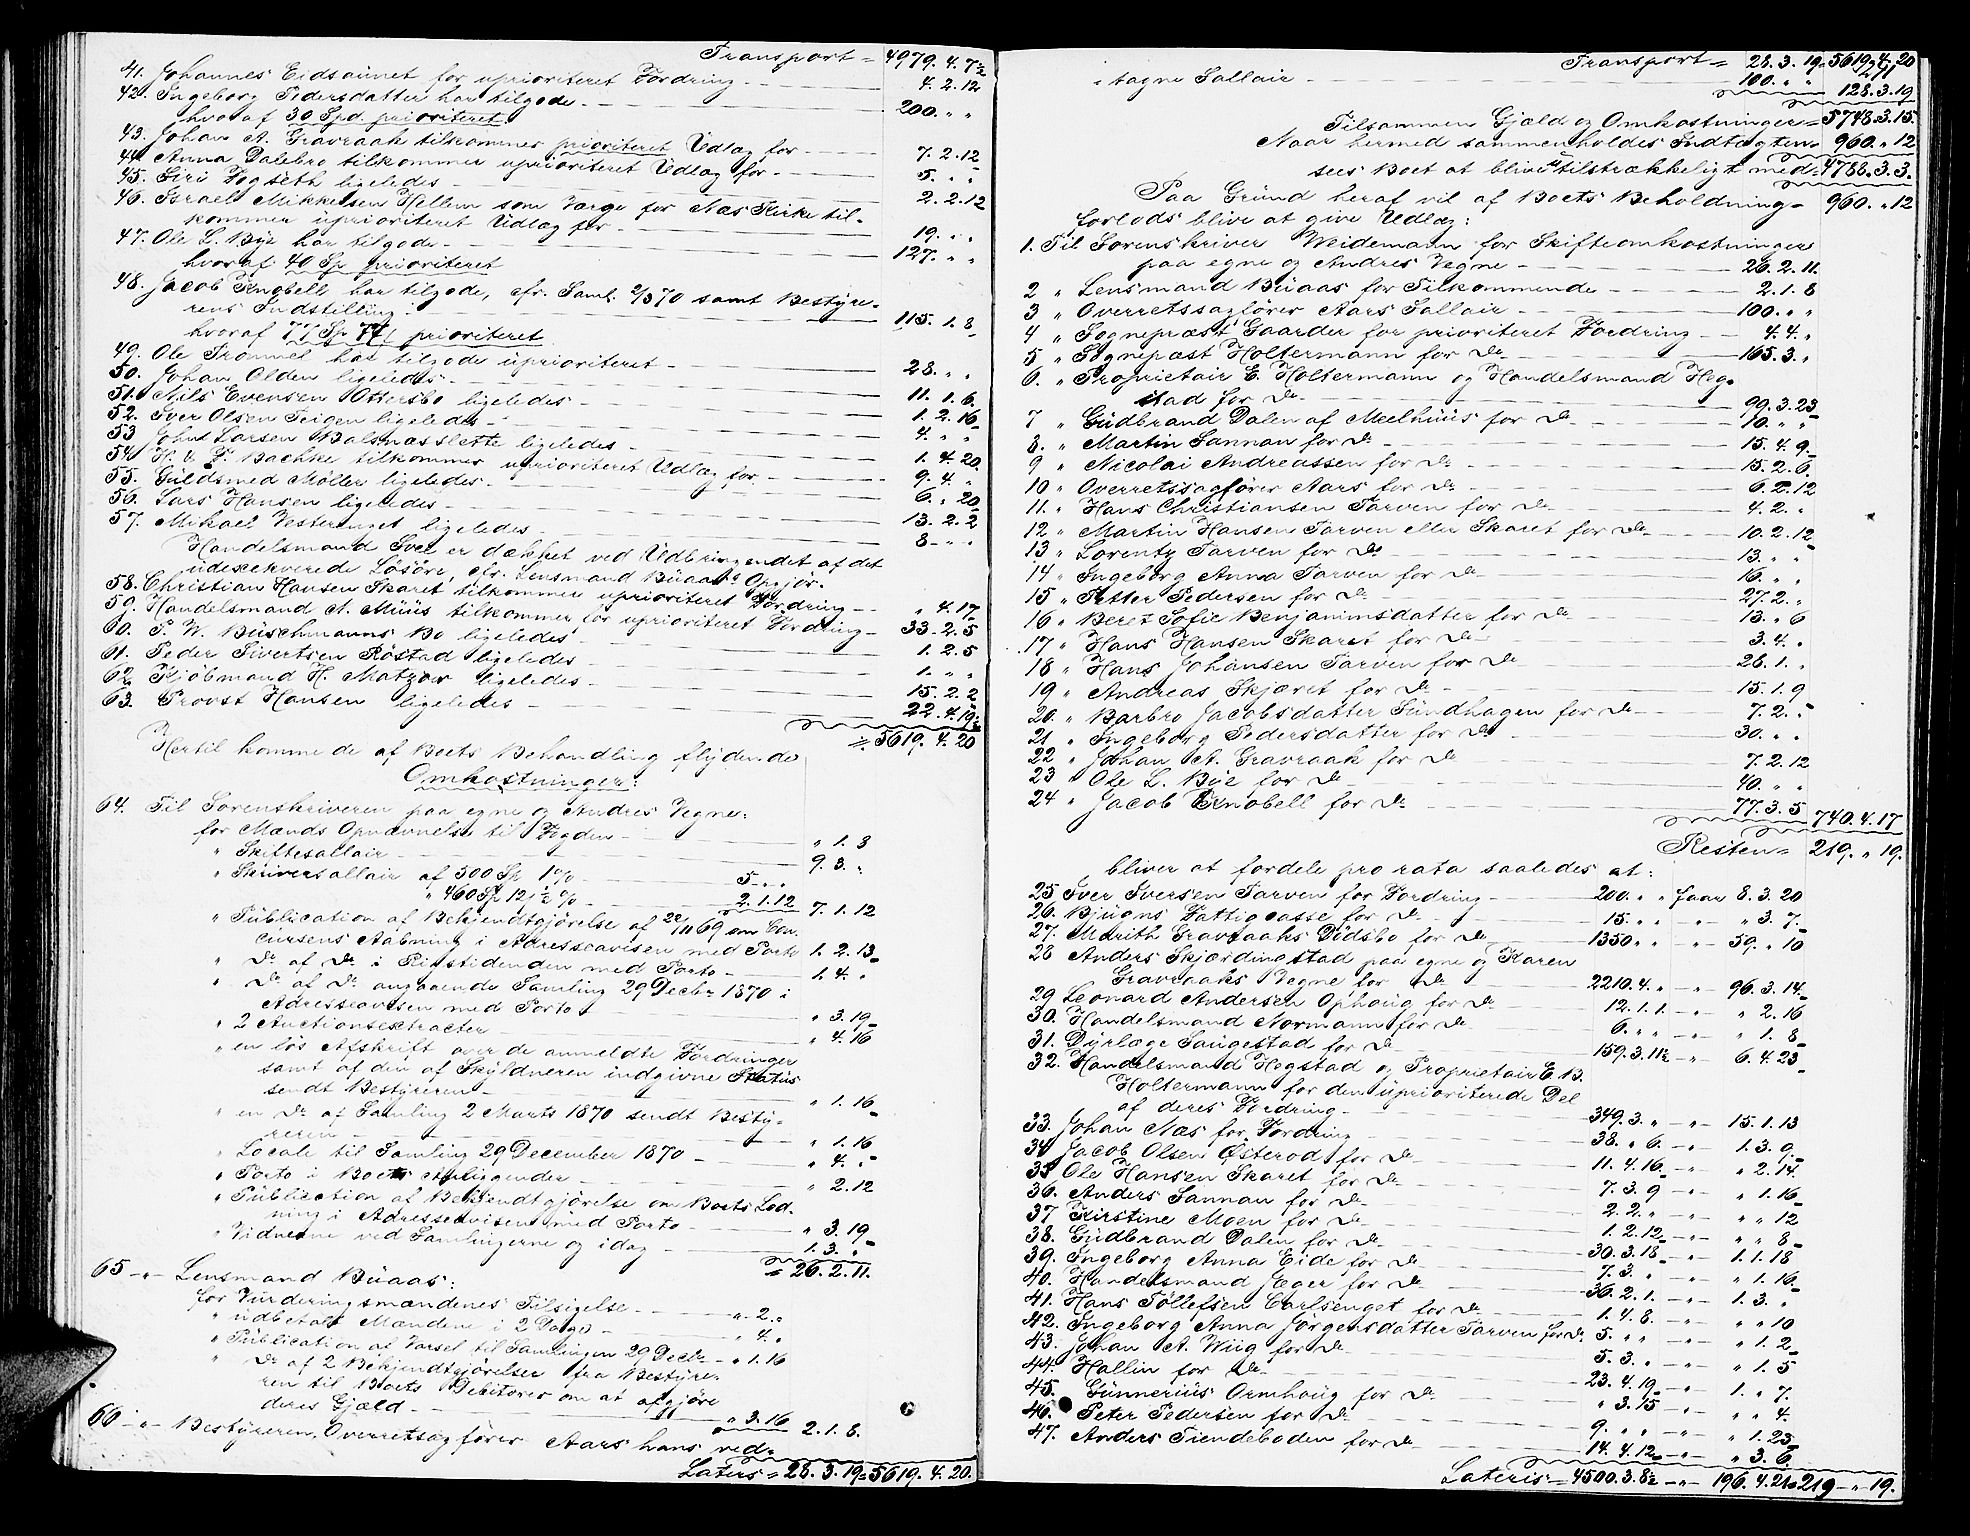 Transport = 4979. 4. 7½
41. Johannes Eidsaunet for uprioriteret Fordring - 4. 2. 12
42. Ingeborg Pedersdatter har tilgode - 200. " "
hvoraf 30 Spd. prioriteret.
43. Johan A. Gravraak tilkommer prioriteret Udlæg for - 7. 2. 12
44. Anna Dalebro tilkommer uprioriteret Udlæg for - 5. " "
45. Siri Hogseth ligeledes - 2. 2. 12
46. Israel Mikkelsen Hellem som Værge for Næs Kirke til-
kommer uprioriteret Udlæg for - 19. " "
47. Ole L. Bye har tilgode - 127. " "
hvoraf 40 Sp prioriteret
48. Jacob Knobell har tilgode, cfr. Saml. 2/3 70 samt Bestyre-
rens Indstilling - 115. 1. 8
hvoraf 77 Sp prioriteret
49. Ole Trommel har tilgode uprioriteret - 28. " "
50. Johan Olden ligeledes - 11. 1. 6
51. Nils Evensen Ottersbo ligeledes - 1. 2. 16
52. Iver Olsen Teigen ligeledes - 4. " "
53 John Larsen Balsnæsslette ligeledes - 1. 4. 20
54. H. & F. Bachke tilkommer uprioriteret Udlæg for - 9. 4. "
55. Guldsmed Møller ligeledes - 6. " 20
56. Lars Hansen ligeledes - 13. 2. 2
57. Mikael Vesterenget ligeledes - 8 " "
Handelsmand Svee er dækket ved Udbringendet af det
udexekverede Løsøre, cfr. Lensmand Buaas's Opgjør.
58. Christian Hansen Skaret tilkommer uprioriteret Fordring - " 4. 17
59. Handelsmand A. Muus tilkommer for uprioriteret Fordring - 33. 2. 5
60. P. W. Buschmanns Bo ligeledes - 1. 2. 5
61. Peder Sivertsen Røstad ligeledes - 1. " "
62. Kjøbmand H. Matzow ligeledes - 15. 2. 2
63. Provst Hansen ligeledes - 22. 4. 19½
= 5619. 4. 20
Hertil komme de af Boets Behandling flydende
Omkostninger:
64. Til Sorenskriveren paa egne og Andres Vegne:
for Mænds Opnævnelse til Fogden - " 1. 3
" Skiftesallair - 9. 3. "
" Skriversallair af 500 Sp 1% - 5 " "
" 460 Sp 12½% - 2. 1. 12 7. 1. 12
" Publication af Bekjendtgjørelse af 22/11 69 om Con-
cursens Aabning i Adresseavisen med Porto 1. 2. 13
" Do af Do i Rigstidenden med Porto - 1. 4. "
" Do af Do angaaende Samling 29 Decbr 1870 i
Adresseavisen med Porto - " 3. 19
" 2 Auctionsextracter - " 4. 16
" en løs Afskrift over de anmeldte Fordringer
samt af den af Skyldneren indgivne Status
sendt Bestyreren - " 1. 16
" en Do af Samling 2 Marts 1870 sendt Besty-
reren - " 1. 16
" Locale til Samling 29 December 1870 - " 4. "
" Porto i Boets Anliggender - " 2. 12
" Publication af Bekjendtgjørelse om Boets Lod-
ning i Adresseavisen med Porto - " 3. 19
" Vidnerne ved Samlingerne og idag - 1. 3. "
= 26. 2. 11.
65 - " - Lensmand Buaas:
for Vurderingsmændenes Tilsigelse - " 2. "
" udbetalt Mændene i 2 Dage - " 4. "
" Publication af Varsel til Samlingen 29 Decbr - " 1. 16
" Do af 2 Bekjendtgjørelser fra Bestyre-
ren til Boets Debitorer om at afgjøre
deres Gjæld - " 3. 16 2. 1. 8.
66 - " - Bestyreren, Overretsagfører Aars hans ved-
Lateris = 28. 3. 19 = 5619. 4. 20.
Transport = 28. 3. 19 = 5619. 4. 20
tagne Sallair - 100. " "
128. 3. 19
Tilsammen Gjæld og Omkostninger = 5748. 3. 15.
Naar hermed sammenholdes Indtægten = 960. " 12
sees Boet at blive utilstrækkeligt med = 4788. 3. 3.
Paa Grund heraf vil af Boets Beholdning = 960. " 12
forlods blive at give Udlæg:
1. Til Sorenskriver Weidemann for Skifteomkostninger
paa egne og Andres Vegne - 26. 2. 11.
2 " Lensmand Buaas for Tilkommende - 2. 1. 8
3 " Overretssagfører Aars Sallair - 100. " "
4 " Sognepræst Gaarder for prioriteret Fordring - 4. 4. "
5 " Sognepræst Holtermann for Do - 165. 3. "
6. " Proprietair E. Holtermann og Handelsmand Hog-
stad for Do - 99. 3. 23
7 " Gudbrand Dalen af Meelhuus for Do - 10. " "
8. " Martin Sannan for Do - 15. 4. 9
9 " Nicolai Andreassen for Do - 15. 2. 6
10 " Overretssagfører Aars for Do - 6. 2. 12
11. " Hans Christiansen Tarven for Do - 4. 2. "
12 " Martin Hansen Tarven eller Skaret for Do - 10. 2. 12
13 " Lorentz Tarven for Do - 13. " "
14 " Ingeborg Anna Tarven for Do - 16. " "
15 " Petter Pedersen for Do - 27. 2. "
16 " Beret Sofie Benjaminsdatter for Do - 13. " 6
17 " Hans Hansen Skaret for Do - 3. 4. "
18 " Hans Johansen Tarven for Do - 26. 1. "
19 " Andreas Skjæret for Do - 15. 1. 9
20. " Barbro Jacobsdatter Sundhagen for Do - 7. 2. "
21 " Ingeborg Pedersdatter for Do - 30. " "
22 " Johan A. Gravraak for Do - 7. 2. 12
23 " Ole L. Bye for Do - 40. " "
24 " Jacob Knobell for Do - 77. 3. 5 740. 4. 17
Resten = 219. " 19.
bliver at fordele pro rata saaledes at:
25 Iver Iversen Tarven for Fordring - 200. " " faar 8. 3. 20
26. Bjugns Fattigcasse for Do - 15. " " - " - " 3. 7
27. Marith Gravraaks Dødsbo for Do - 1350 " " - " - 59. " 10
28 Anders Skjærdingstad paa egne og Karen
Gravraaks Vegne for Do - 2210. 4. " - " - 96. 3. 14
29 Leonard Andersen Ophaug for Do - 12. 1. 1. - " - " 2. 16
30. Handelsmand Normann for Do - 6. " " - " - " 1. 8
31. Dyrlæge Saugestad for Do - 159. 3. 11½ - " - 6. 4. 23
32. Handelsmand Hogstad og Proprietair E. B.
Holtermann for den uprioriterede Del
af deres Fordring - 349. 3. " - " - 15. 1. 13
33. Johan Næs for Fordring - 38. " 6. - " - 1. 3. 9
34 Jacob Olsen Østerod for Do - 11. 4. 16 - " - " 2. 14
35 Ole Hansen Skaret for Do - 7. 3. 9 - " - " 1. 16
36. Anders Sannan for Do - 2. 2. " - " - " " 12
37 Kirstine Moen for Do - 1. 2. 12 - " - " " 8
38. Gudbrand Dalen for Do - 30. 3. 18 - " - 1. 1. 18
39. Ingeborg Anna Eide for Do - 7. 3. " - " - " 1. 16
40. Handelsmand Jæger for Do - 36. 2. 1. - " - 1. 3. "
41. Hans Tøllefsen Carlsenget for Do - 1. 4. 8. - " - " " 10
42. Ingeborg Anna Jørgensdatter Tarven for Do 5. " " - " - " 1. 2
43. Johan A. Wiig for Do - 5. 3. " - " - " 1. 5
44. Hallin for Do - 23. 4. 19 - " - 1. " 7.
45. Gunnerius Ormhaug for Do - " 3. 15 - " - " " 4.
46. Peter Pedersen for Do - 9. " " - " - " 1. 23
47. Anders Tiendeboden for Do - 14. 4. 12 - " - " 3. 6.
Lateris = 4500. 3. 8½ - " - 196. 4. 21 = 219 - " 19.